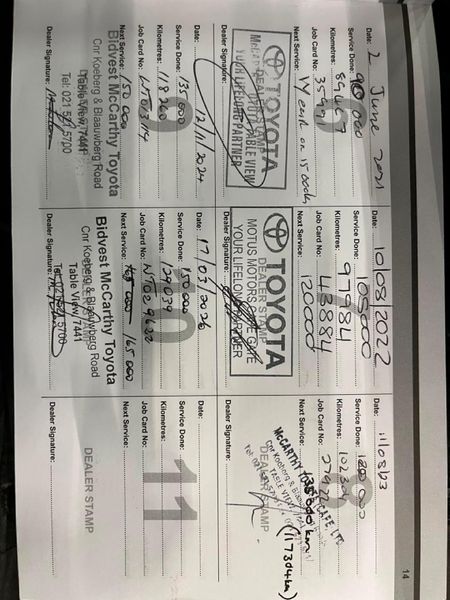 Date: 2 June 2021
Service Done: 90 000
Kilometres: 89467
Job Card No:
Next Service: 1 Year or 15 000km
DEALER STAMP
TOYOTA
McCARTHY TABLE VIEW
YOUR LIFELONG PARTNER
Dealer Signature:
Date: 10/08/2022
Service Done: 105000
Kilometres: 97984
Job Card No: 43884
Next Service: 20000
DEALER STAMP
TOYOTA
MOTUS MOTORS
GATE
YOUR LIFELONG PARTNER
Dealer Signature:
Date: 11/08/23
Service Done:
Kilometres: 102304
Job Card No:
Next Service: 135000km
(117304km)
McCARTHY
CAPE, LTD
Cnr Koeberg & Blaauwberg
TABLE VIEW
DEALER STAMP
Dealer Signature:
9
Date: 12/11/2024
Service Done: 135 000
Kilometres: 118200
Job Card No:
Next Service: 150 000
DEALER STAMP
Bidvest McCarthy Toyota
Cnr Koeberg & Blaauwberg Road
Table View, 7441
Tel: 021 521 5700
Dealer Signature:
10
Date: 17/03/2026
Service Done: 150 000
Kilometres:
Job Card No:
Next Service: 165 000
DEALER STAMP
Bidvest McCarthy Toyota
Cnr Koeberg & Blaauwberg Road
Table View, 7441
Tel: 021 521 5700
Dealer Signature:
11
Date:
Service Done:
Kilometres:
Job Card No:
Next Service:
DEALER STAMP
Dealer Signature:
14